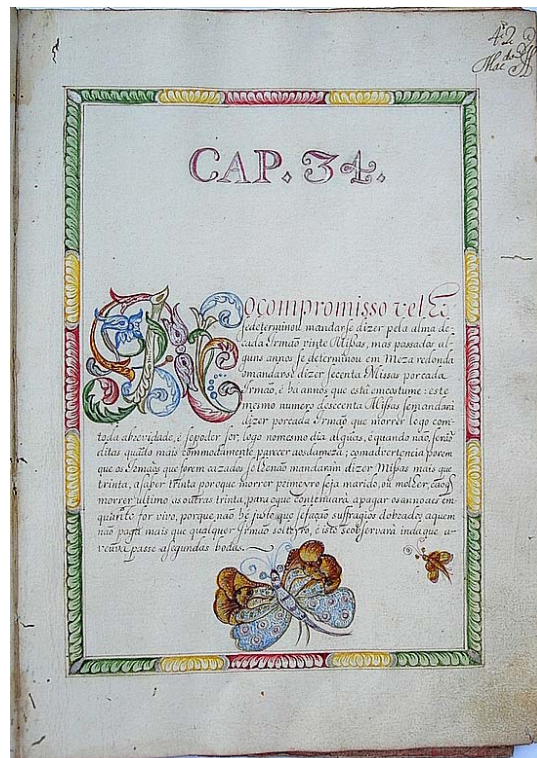 42
CAP. 34.
No compromisso velho
se determinou mandarse dizer pela alma de
cada Irmaõ vinte Missas, mas passados al-
guns annos se determinou em Meza redonda
o mandarse dizer secenta Missas por cada
Irmaõ, é há annos que está em costume: este
mesmo numero de secenta Missas se mandará
dizer por cada Irmaõ que morrer logo com
toda abrevidade, é se poder ser, logo no mesmo dia algũas, é quando naõ, seraõ
ditas quãdo mais commodamente parecer aos da meza; com advertencia porem
que os Irmaõs que forem cazados se lhe naõ mandaràm dizer Missas mais que
trinta, a saber trinta por o que morrer primeyro seja marido, ou molher, é ao q̃
morrer ultimo as outras trinta, para o que continuará a pagar os annoaes em-
quãto for vivo, porque naõ hé justo que se façaõ suffragios dobrados aquem
naõ paga mais que qualquer Irmaõ solteyro, é isto se observará inda que a
veuva passe a segundas bodas.